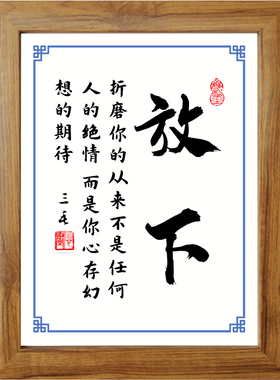 放下
折磨你的从来不是任何
人的绝情 而是你心存幻
想的期待
三毛